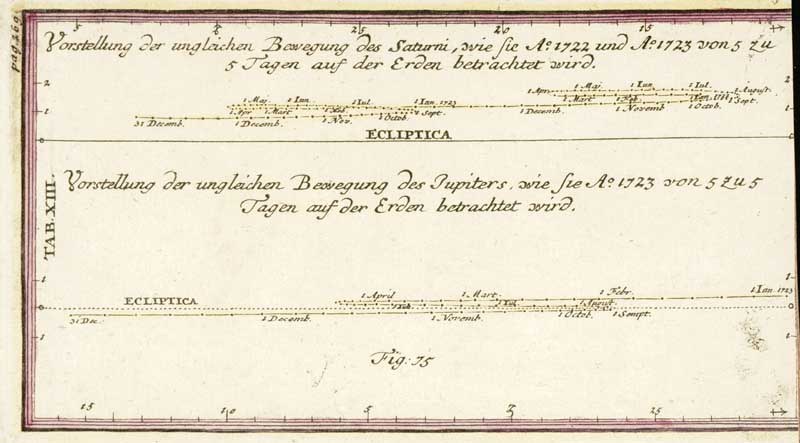 pag. 269
5 25 20 15
Vorstellung der ungleichen Bewegung des Saturni, wie sie Ao. 1722 und Ao. 1723 von 5 zu
5 Tagen auf der Erden betrachtet wird.
2 2
1 Maj. 1 Iun. 1 Iul. 1 Ian. 1723 1 Apr. 1 Maj. 1 Iun. 1 Iul. 1 August.
1 Apr 1 Mart 1 Feb. 1 Sept. 1 Mart 1 Feb. 1 Sept.
1 1
31 Decemb. 1 Decemb. 1 Nov. 1 Octob. 1 Decemb. 1 Novemb 1 Octob.
ECLIPTICA
0 0
TAB. XIII.
Vorstellung der ungleichen Bewegung des Jupiters, wie sie Ao. 1723 von 5 zu 5
Tagen auf der Erden betrachtet wird.
1 1
ECLIPTICA 1 April 1 Mart. 1 Febr. 1 Ian. 1723
0 1 Iul. 1 August. 0
31 Dec. 1 Decemb. 1 Novemb. 1 Octob. 1 Sempt.
1 1
Fig: 75
15 10 5 25